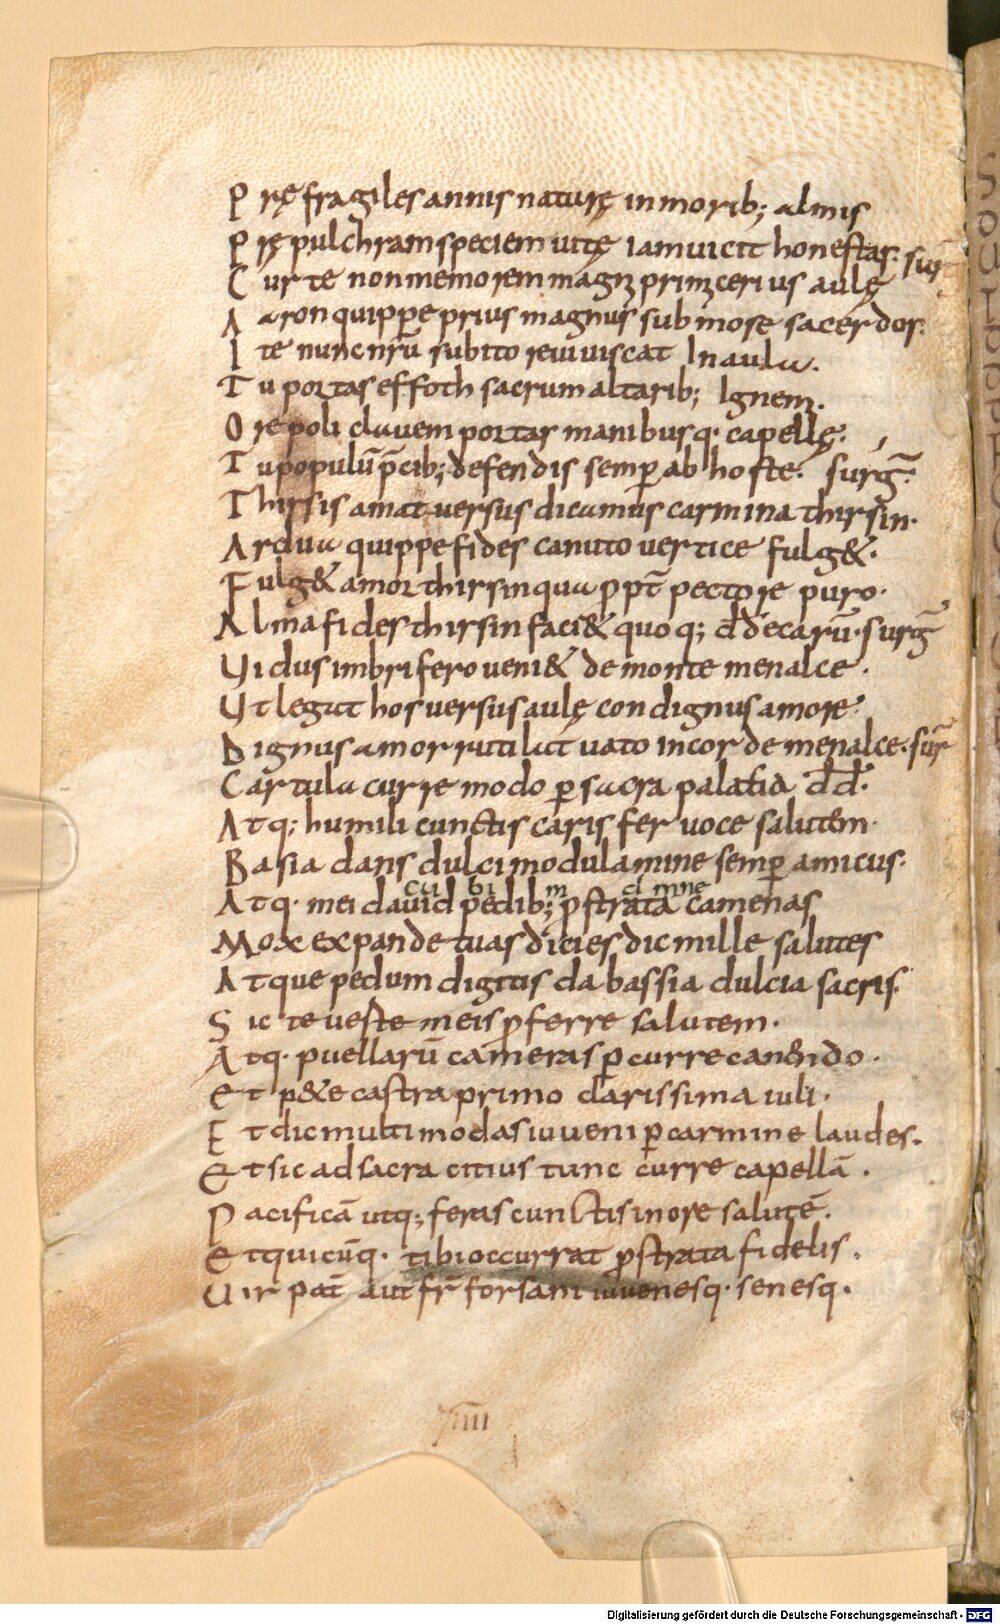 P rę fragiles annis naturę in morib; almis
P rę pulchram speciem uitę iam uicit honestas. sur
C ur te non memorem magnȩ primicerius aulę
A aron quippe prius magnus sub mose sacerdos.
I te nunc nr̄m subito reuiuiscat In aula.
T u portas effoth sacrum altarib; Ignem.
O re poli clauem portas manibusq. capellę.
T u populū p̄cib; defendis semper ab hoste. surḡ.
T hirsis amat uersus dicamus carmina thirsin.
A rdua quippe fides canuto uertice fulg&.
F ulg& amor thirsin qua ꝓpt̄ pectore puro.
A lma fides thirsin faci& quoq; dd̄ carū. surḡ
U idus imbrifero ueni& de monte menalce.
U t legat hos uersus aulę condignus amore.
D ignus amor rutilat uato in corde menalce. sur̄
C artula curre modo ꝑ sacra palatia dd̄.
A tq; humili cunctis caris fer uoce salutem.
B asia dans dulci modulamine semꝑ amicus.
cu bi m d mne
A tq. mei dauid pedib; ꝓstrata camenas
M ox expande tuas dicies dic mille salutes
A tque pedum digitis da bassia dulcia sacris.
S ic te ueste meis ꝓferre salutem.
A tq. puellarū cameras ꝑcurre canendo.
E t p&e castra primo clarissima iuli.
E t dic multimodas iuueni ꝑ carmine laudes.
E t sic ad sacra citius tunc curre capellā.
P acificā utq; feras cunctis in ore salutē.
E t quicūq. tibi occurrat ꝓstrata fidelis.
U ir pat̄ aut fr̄ forsam iuuenesq. senesq.